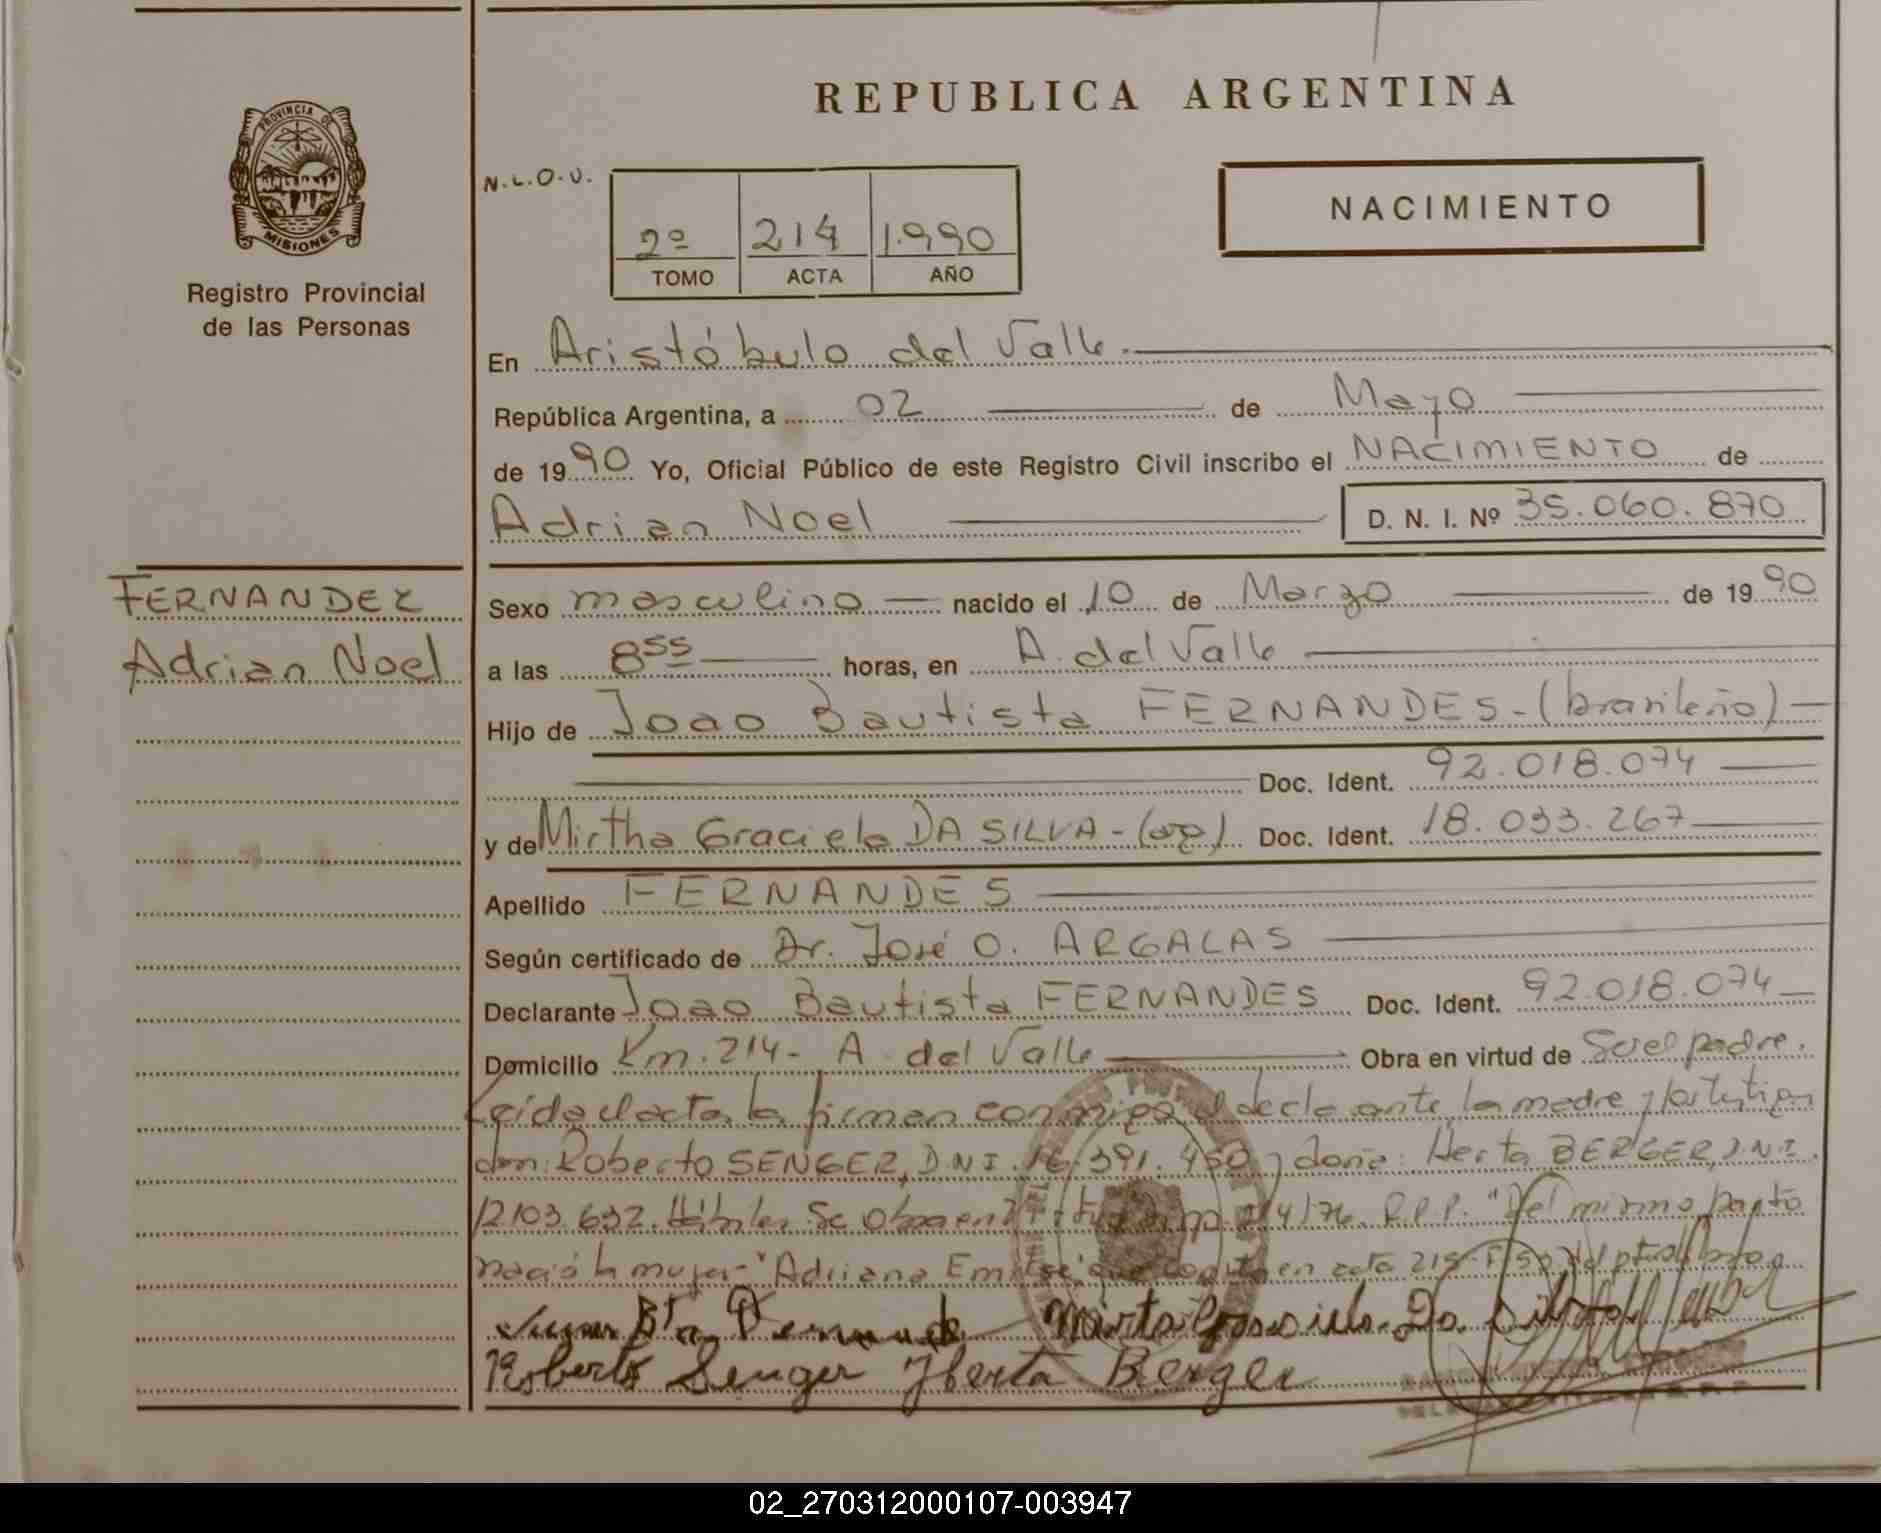 REPUBLICA ARGENTINA
PROVINCIA DE
MISIONES
Registro Provincial
de las Personas
N.L.O.U.
2º 214 1.990
TOMO ACTA AÑO
NACIMIENTO
En Aristóbulo del Valle.
República Argentina, a 02 de Mayo
de 1990 Yo, Oficial Público de este Registro Civil inscribo el NACIMIENTO de
Adrian Noel D. N. I. Nº 35.060.870
FERNANDEZ
Adrian Noel
Sexo masculino nacido el 10 de Marzo de 1990
a las 8 55 horas, en A. del Valle
Hijo de Joao Bautista FERNANDES - (brasileño)
Doc. Ident. 92.018.074
y de Mirtha Graciela DA SILVA - (arg) Doc. Ident. 18.033.267
Apellido FERNANDES
Según certificado de Dr. José O. ARGALAS
Declarante Joao Bautista FERNANDES Doc. Ident. 92.018.074
Domicilio Km. 214 - A. del Valle Obra en virtud de Ser el padre.
Leída el acta, la firman conmigo el declarante, la madre y los testigos
don: Roberto SENGER, D.N.I. 16.391.450 y doña: Herta BERGER, D.N.I.
12103.632. Hábiles. Se obra en 214/76. R.P.P. "Del mismo parto
nació la mujer - "Adriana que consta en acta 215
Mirta Graciela Da Silva
Roberto Senger Herta Berger
02_270312000107-003947